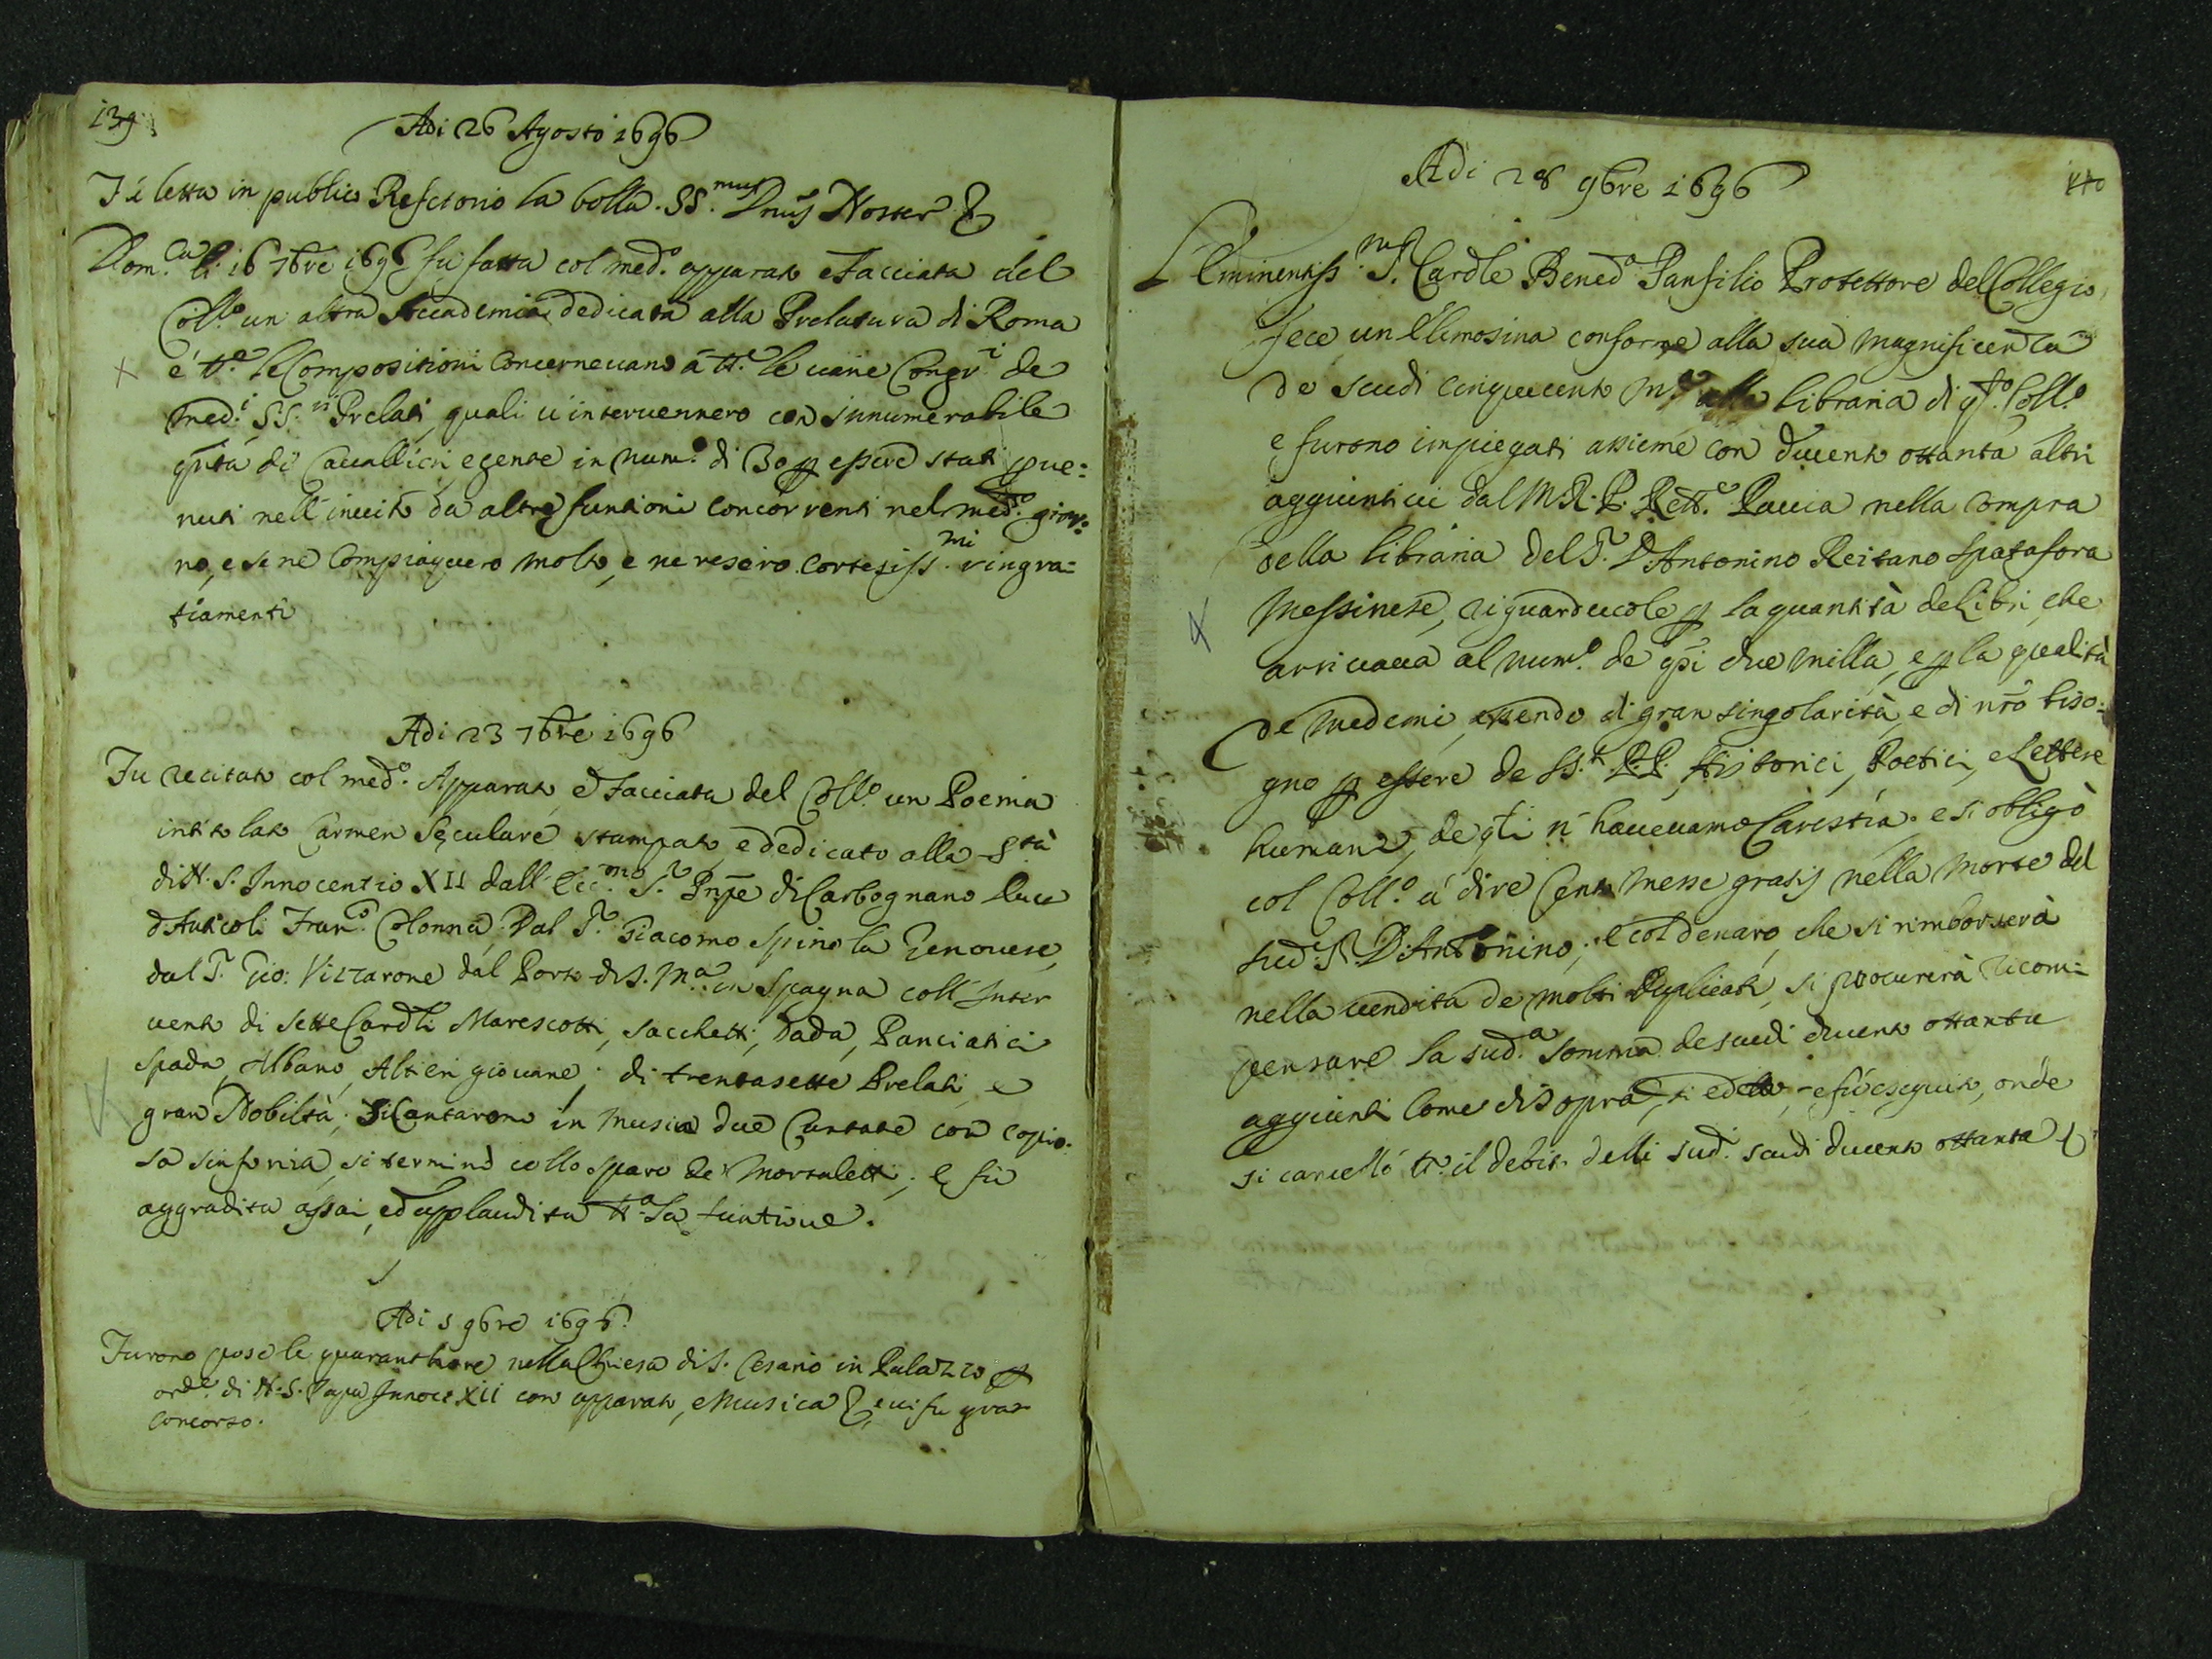 139
Adi 26 Agosto 1696
Fu letta in publico Refettorio la bolla. SS.mus Dnus Noster &
Dom.ca li 16 7bre 1696 fu fatta col med.o apparato e facciata del
Coll.o un altra Accademia dedicata alla Prelatura di Roma
e tt.e le Compositioni concernevano a tt.e le varie Congr.i de
med.i SS.ri Prelati quali v'intervennero con innumerabile
qntà di Cavallieri, e gente in num.o di 30 p essere stati pre:
nuti nell'invito da altre funtioni concorrenti nel med.o gior:
no, e se ne compiaquero molto, e ne resero cortesiss.mi ringra:
tiamenti
Adi 23 7bre 1696
Fu recitato col med.o Apparato, e facciata del Coll.o un Poema
intitolato Carmen Sęculare stampato, e dedicato alla S.tà
di N. S. Innocentio XII dall' Ecc.mo S.r Prnpe di Carbognano Duca
d'Anticoli Fran.co Colonna. Dal S.r Giacomo Spinola Genovese,
dal S.r Gio: Vizzarone dal Porto di S. M.a in Spagna coll'Inter
vento di sette Cardli Marescotti, Sacchetti, Dada, Panciatici
Spada, Albano, Altieri giovane; di trentasette Prelati, e
gran Nobiltà; Si Cantarono in musica due Cantate con copio:
sa sinfonia, si terminò collo sparo de Mortaletti; e fù
aggradita assai, ed applaudita tt.a la funtione.
Adi 5 9bre 1696
Furono poste le quaranthore nella Chiesa di S. Cesario in Palazzo p
ord.e di N. S. Papa Innoc. XII con apparato, e Musica &, e vi fu gran
concorso.
140
Adi 28 9bre 1696
L'Eminentiss.mo S.r Cardle Bened.o Panfilio Protettore del Collegio,
fece un Elemosina conforme alla sua magnificenza
de scudi cinquecento m.ta alla libraria di q.sto Coll.o
e furono impiegati assieme con ducento ottanta altri
aggiuntivi dal M. R. P. Rett.e Pavia nella compra
della libraria del S.r D. Antonino Reitano Spatafora
Messinese, riguardevole p la quantità de Libri, che
arrivava al num.o de qsi due milla, e p la qualità
de medemi essendo di gran singolarità, e di nro biso:
gno p essere de SS.ti P.P. Historici, Poetici, e Lettere
humane, de qti n' havevamo Carestia. e si obligò
col Coll.o a dire Cento messe gratis nella morte del
sud.o S.r D. Antonino; e col denaro, che si rimborserà
nella vendita de molti Duplicati, si procurerà ricom:
pensare la sud.a somma de scudi ducento ottanta
aggiunti come di sopra, e fù eseguito, onde
si cancellò tt.o il debito delli sud.i scudi ducento ottanta